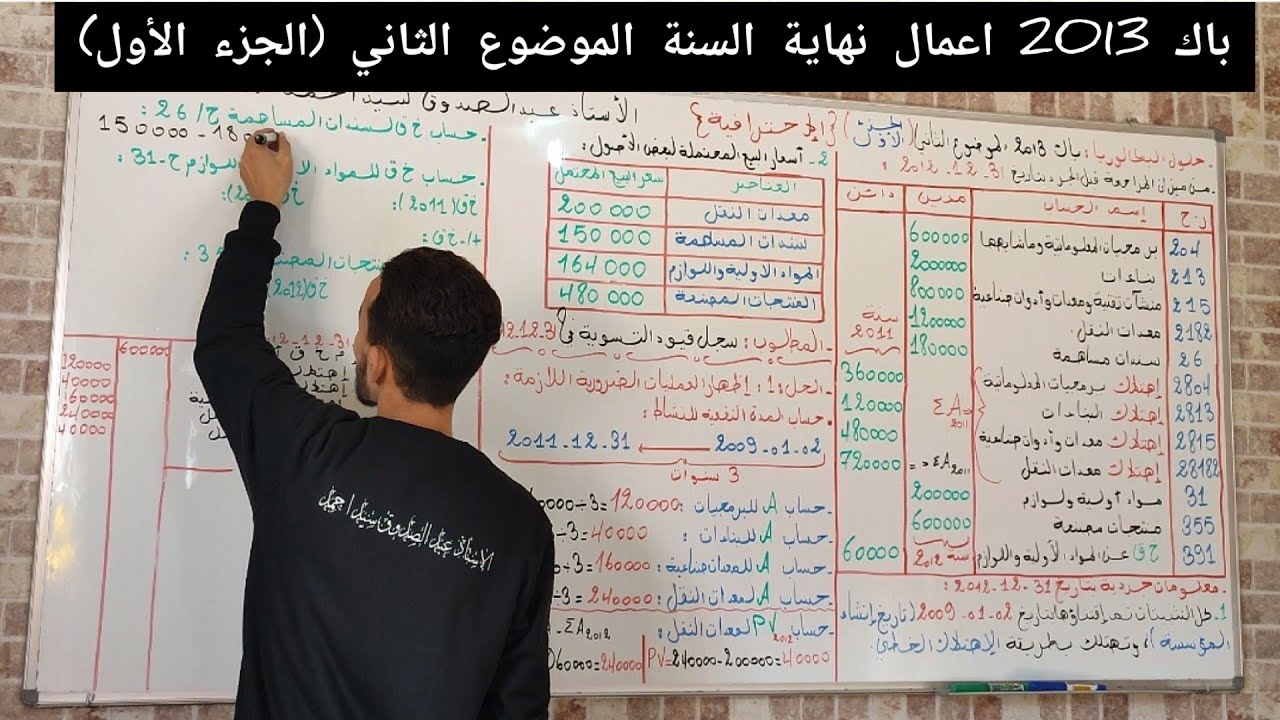 باك 2013 اعمال نهاية السنة الموضوع الثاني (الجزء الأول)
الأستاذ عبد الصدوق سيد احمد
- حلول البكالوريا: باك 2013 الموضوع الثاني (الجزء الأول) {الإحترافية}
- من ميزان المراجعة قبل الجرد بتاريخ 31-12-2012:
ر.ح إسم الحساب مدين دائن
204 برمجيات المعلوماتية وماشابهها 600000
213 بناءات 200000
215 منشآت تقنية ومعدات وأدوات صناعية 800000
2182 معدات النقل 1200000
26 سندات مساهمة 180000
سنة 2011
2804 إهتلاك برمجيات المعلوماتية 360000
2813 إهتلاك البناءات 120000
2815 إهتلاك معدات وأدوات صناعية 480000
28182 إهتلاك معدات النقل 720000
ΣA2011
= ΣA2011
31 مواد أولية ولوازم 200000
355 منتجات مصنعة 600000
391 خ ق عن المواد الأولية واللوازم سنة 2012 60000
- معلومات جردية بتاريخ 31-12-2012:
1- كل التثبيتات تم إقتناؤها بتاريخ 02-01-2009 (تاريخ إنشاء
المؤسسة)، وتهتلك بطريقة الإهتلاك الخطي.
2- أسعار البيع المحتملة لبعض الأصول:
العناصر سعر البيع المحتمل
معدات النقل 200 000
سندات المساهمة 150 000
المواد الاولية واللوازم 164 000
المنتجات المصنعة 480 000
- المطلوب: سجل قيود التسوية في 31-12-12
- الحل: 1: إظهار العمليات الضرورية اللازمة:
- حساب المدة النفعية للنشاط:
02-01-2009 ← 31-12-2011
3 سنوات
- حساب A للبرمجيات: 0000÷3=120000
- حساب A للبناءات: ÷3=40000
- حساب A للمعدات صناعية: 0÷3=160000
- حساب A لمعدات النقل: ÷3=240000
- حساب PV2012 لمعدات النقل: A-ΣA2012
060000=240000 PV=240000-200000=40000
- حساب خ ق لسندات المساهمة ح/26:
150000-180
- حساب خ ق للمواد الا لوازم ح-31:
خ ق (2011): خ ق
+ا-خ ق:
منتجات المصن
خ ق (2012)
31-12-2
م خ ق
إهتلا
إهتلا
600000
120000
40000
160000
240000
40000
الاستاذ عبد الصدوق سيد احمد